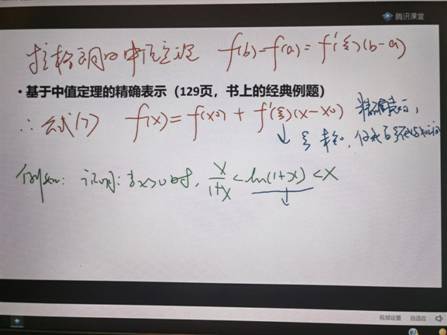 腾讯课堂
拉格朗日中值定理 f(b)-f(a)=f'(ξ)(b-a)
• 基于中值定理的精确表示（129页，书上的经典例题）
∴ 公式(7) f(x)=f(x0)+f'(ξ)(x-x0) 精确表示，
↓ ξ 未知，
例如：证明：当x>0时， x/(1+x) < ln(1+x) < x